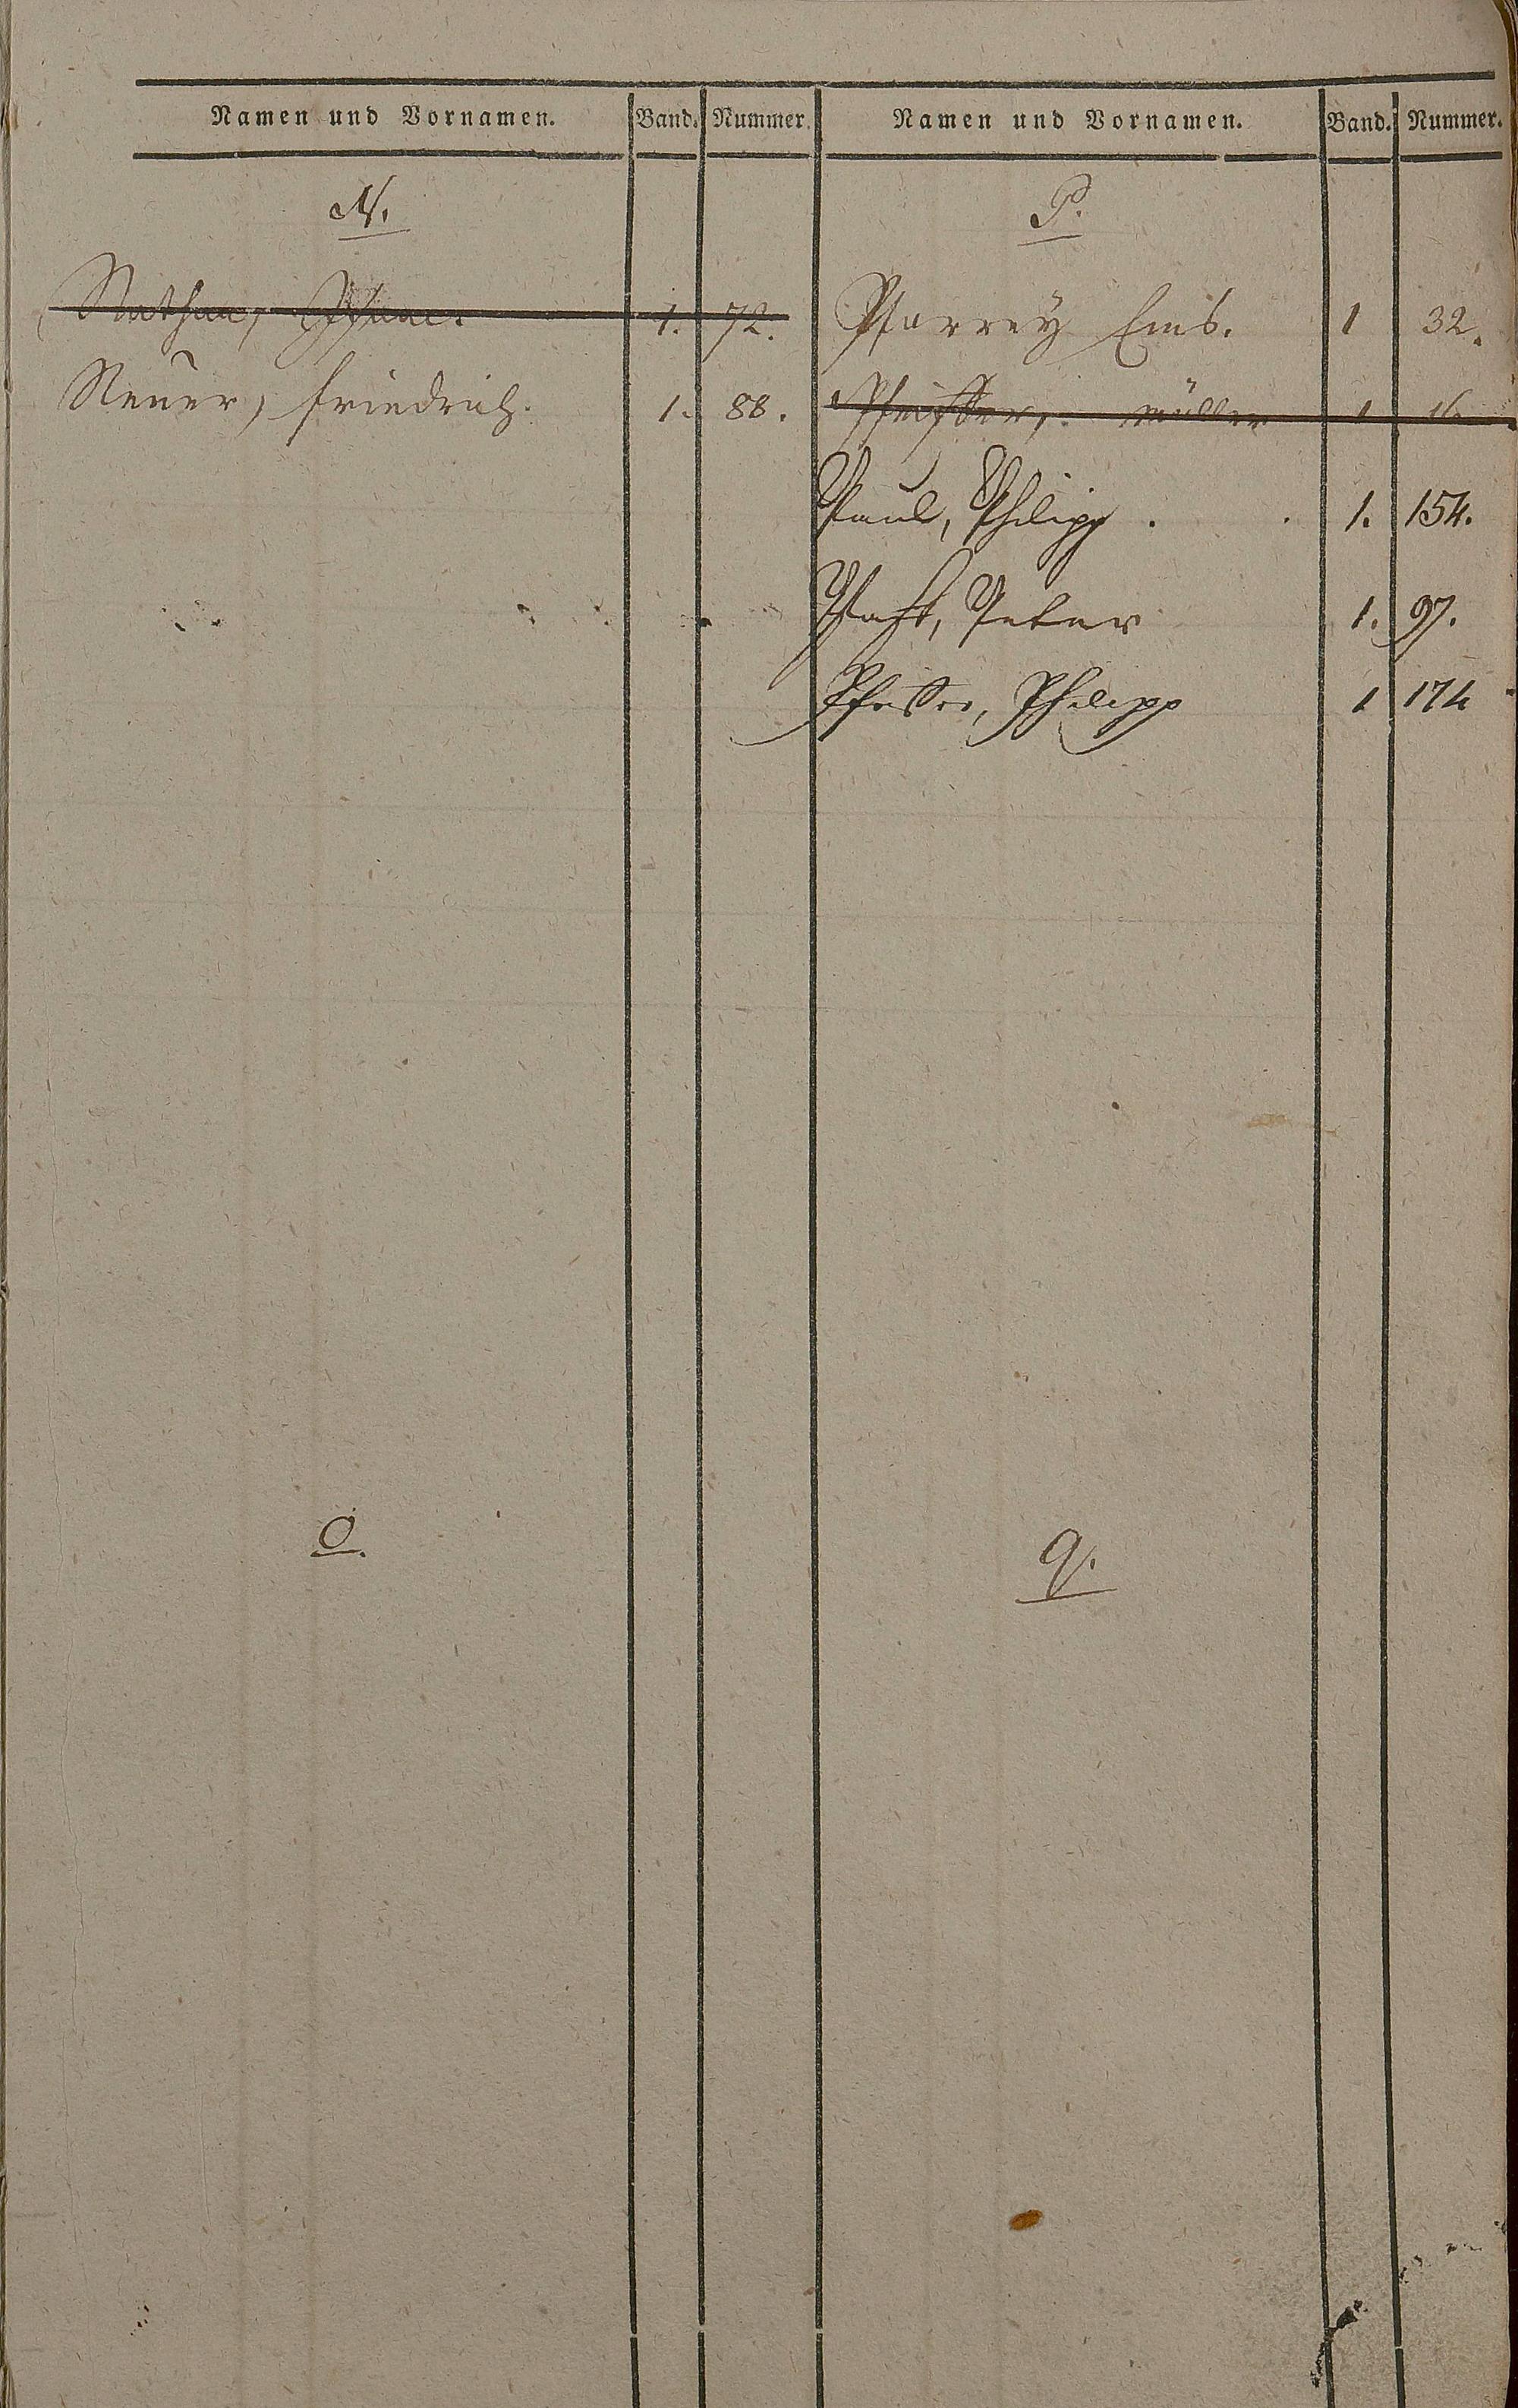 Namen und Vornamen. Band. Nummer.
N.
Nathan, 1. 72.
Neuer, Friedrich. 1. 88.
O.
Namen und Vornamen. Band. Nummer.
P.
Pfarrey Ems. 1 32.
Pfeiffer, Müller 1 16
Paul, Philipp . . 1. 154.
Peter 1. 97.
Philipp 1 174
Q.